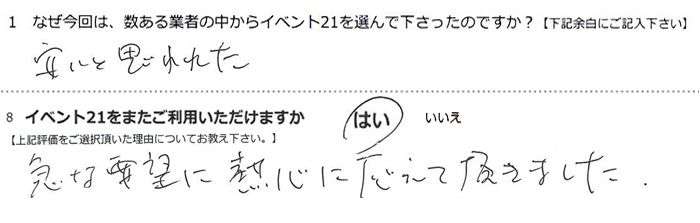 1 なぜ今回は、数ある業者の中からイベント21を選んで下さったのですか?【下記余白にご記入下さい】
安いと思われれた
8 イベント21をまたご利用いただけますか はい いいえ
【上記評価をご選択頂いた理由についてお教え下さい。】
急な要望に熱心に応えて頂きました.